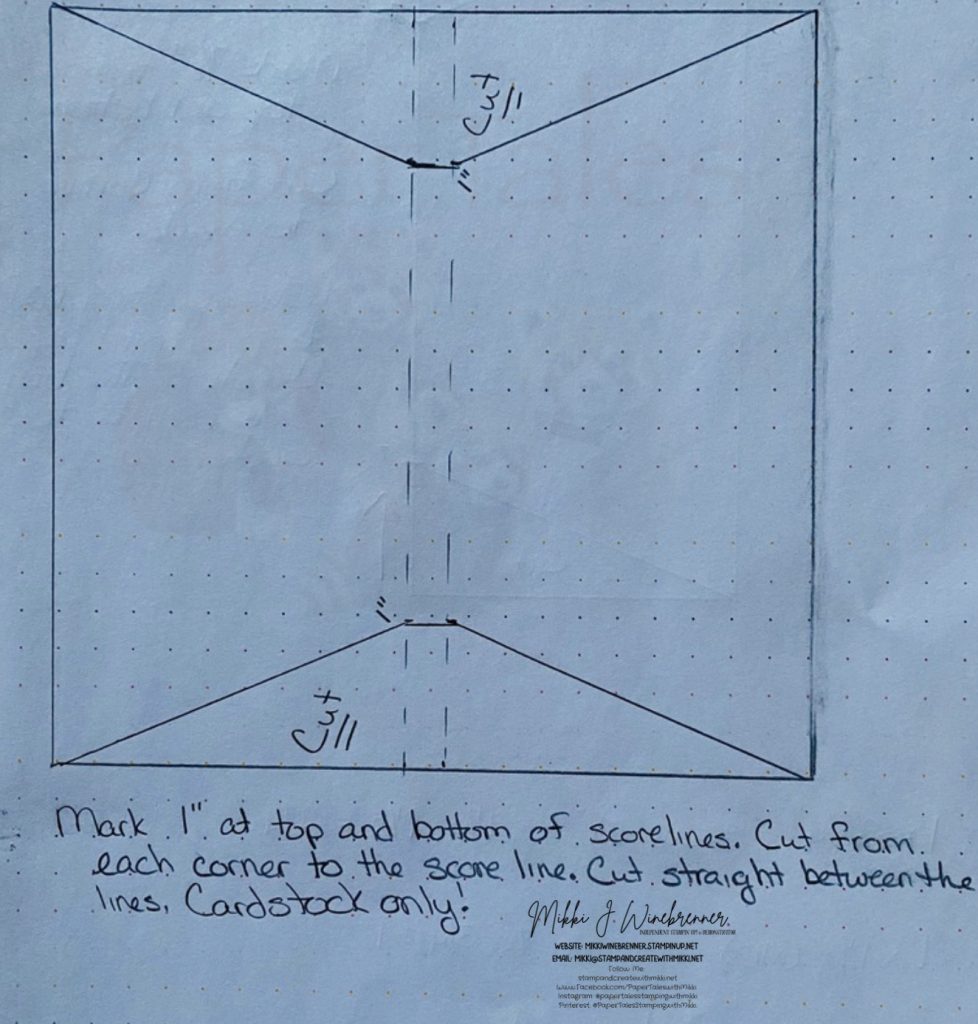 Cut
1"
1"
Cut
Mark 1" at top and bottom of scorelines. Cut from
each corner to the score line. Cut straight between the
lines. Cardstock only!
Mikki J. Winebrenner
INDEPENDENT STAMPIN' UP! DEMONSTRATOR
WEBSITE: MIKKIWINEBRENNER.STAMPINUP.NET
EMAIL: MIKKI@STAMPANDCREATEWITHMIKKI.NET
Follow Me:
stampandcreatewithmikki.net
www.facebook.com/PaperTaleswithMikki
Instagram @papertalesstampingwithmikki
Pinterest @PaperTalesStampingwithMikki